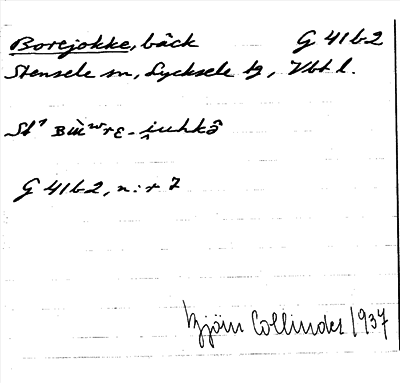 Borejokke, bäck G 41b2
Stensele sn, Lycksele tg, Vbt l.
G 41b2, n:r 7
Björn Collinder 1937